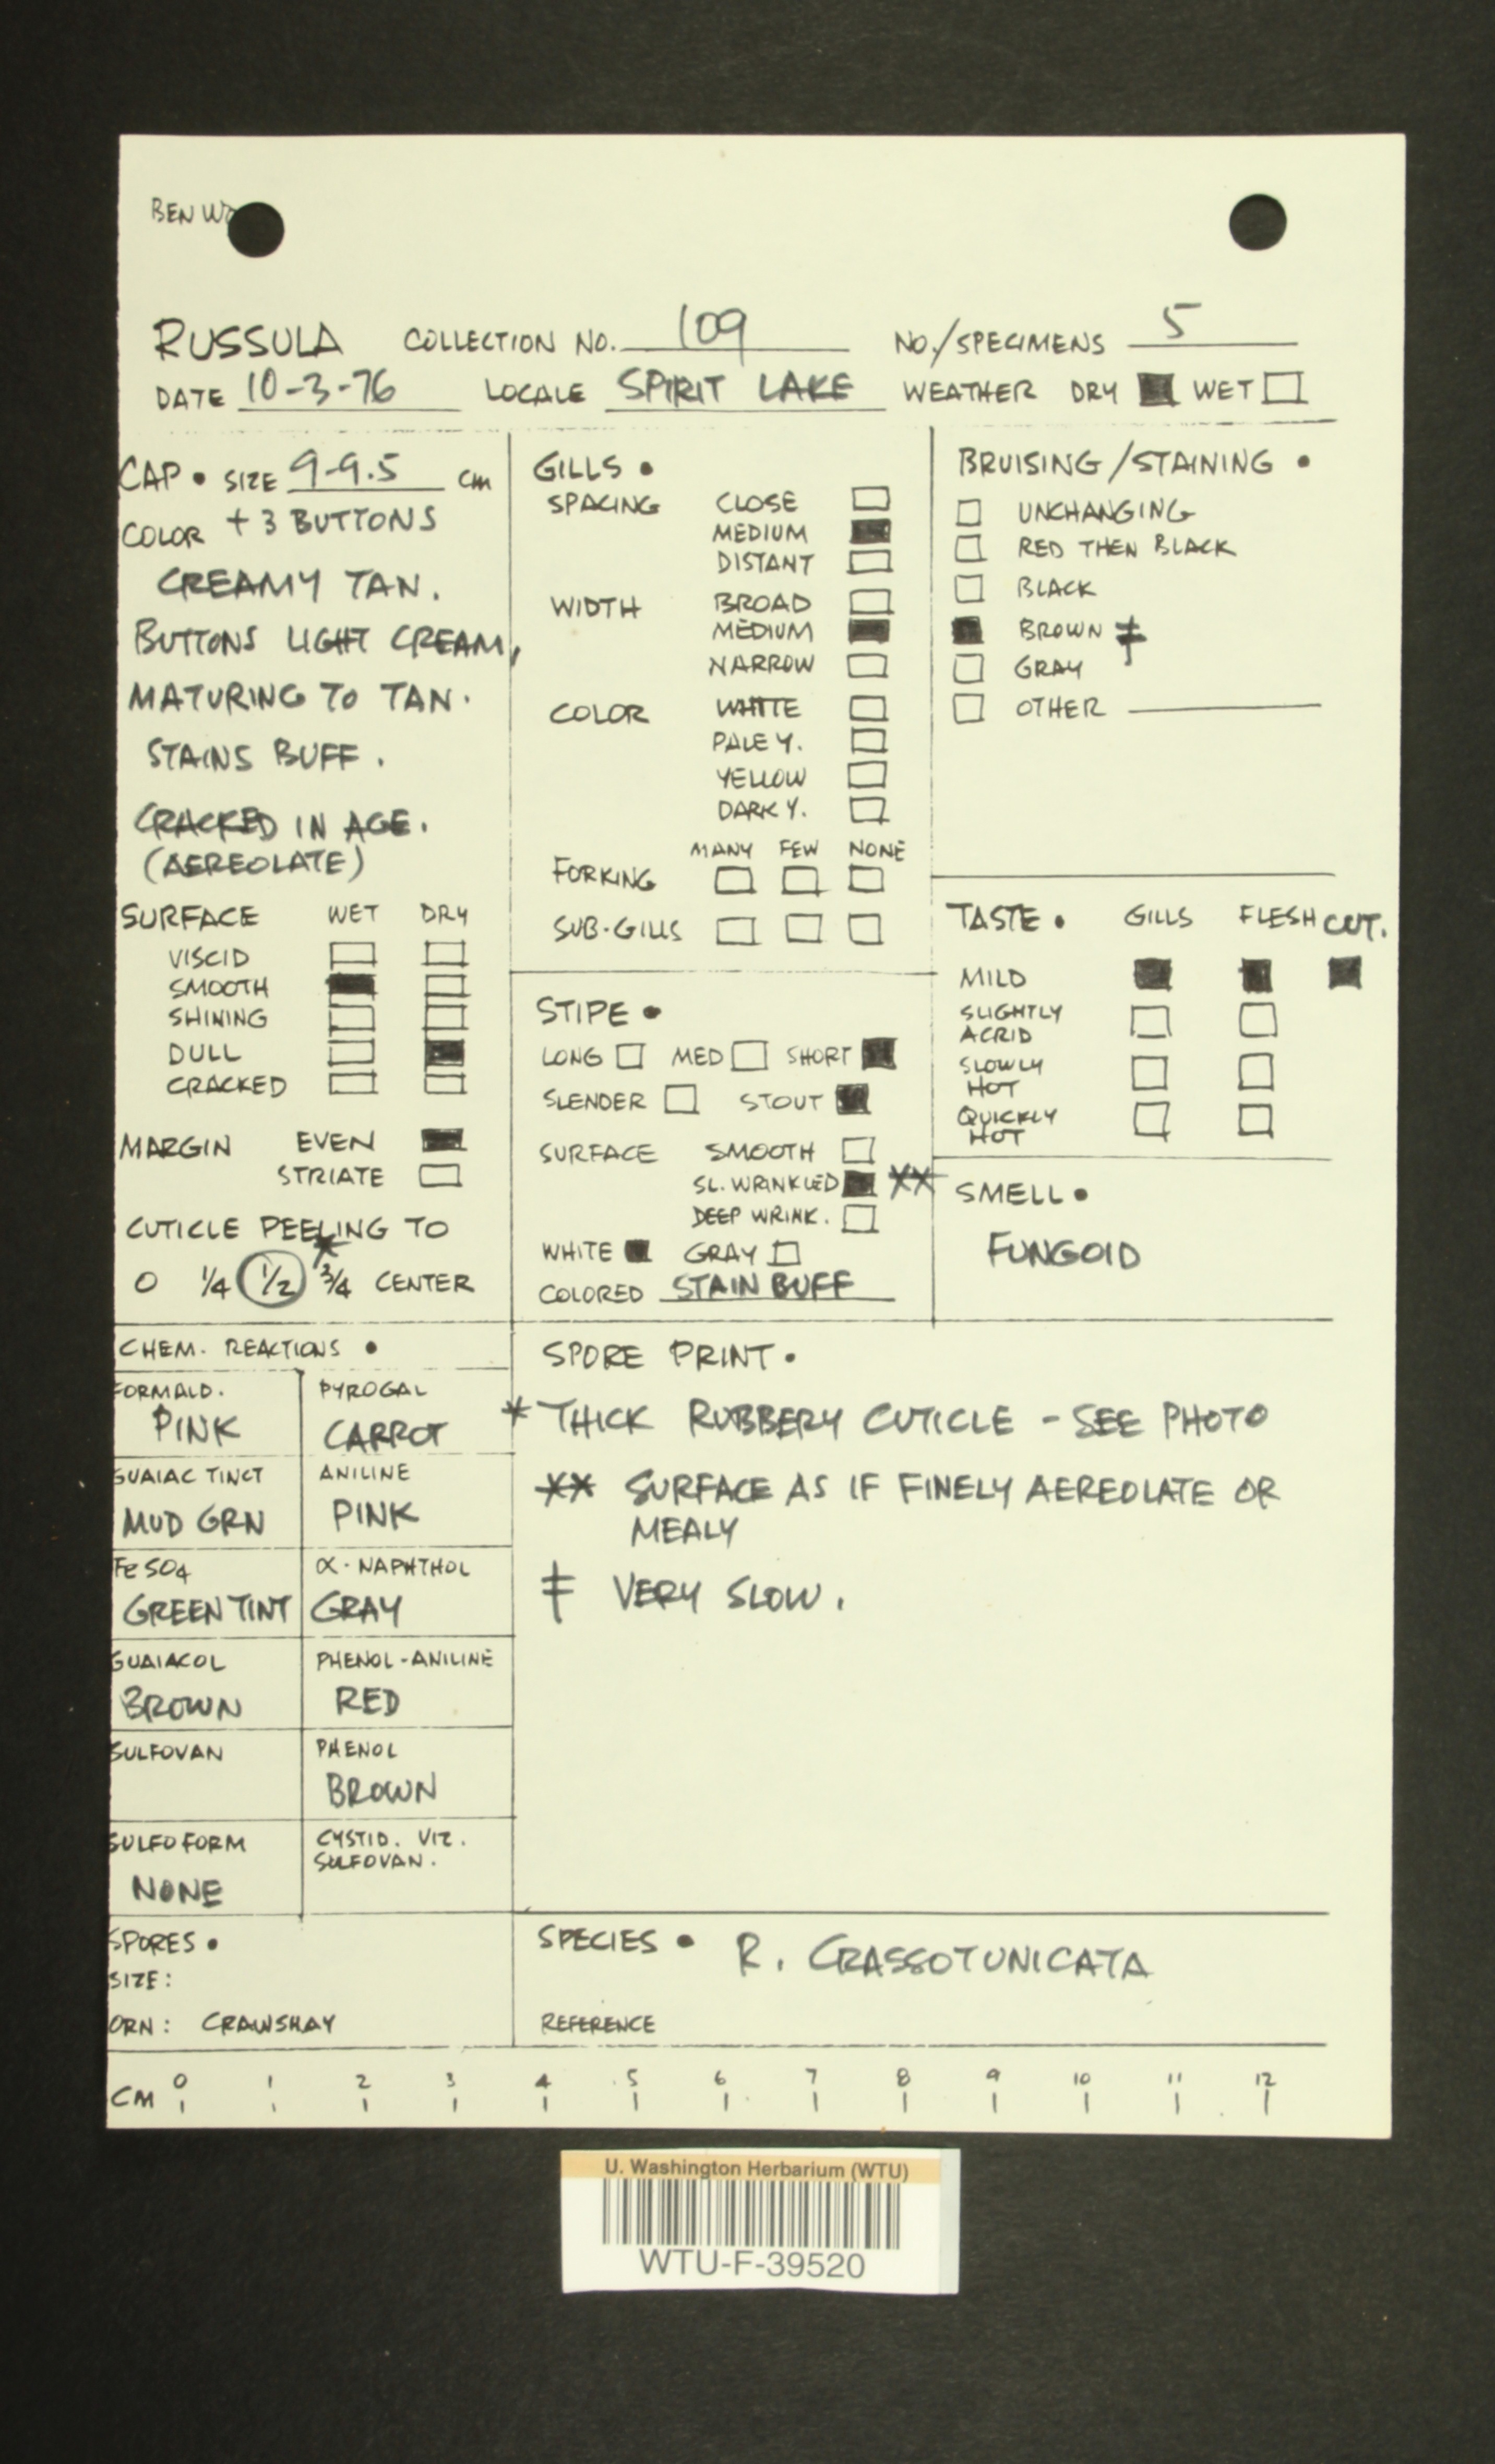 BEN
RUSSULA COLLECTION NO. 109 NO./SPECIMENS 5
DATE 10-3-76 LOCALE SPIRIT LAKE WEATHER DRY WET
CAP • SIZE 9-9.5 cm
COLOR + 3 BUTTONS
CREAMY TAN.
BUTTONS LIGHT CREAM,
MATURING TO TAN.
STAINS BUFF.
CRACKED IN AGE.
(AEREOLATE)
SURFACE WET DRY
VISCID
SMOOTH
SHINING
DULL
CRACKED
MARGIN EVEN
STRIATE
CUTICLE PEELING TO
*
0 1/4 1/2 3/4 CENTER
GILLS •
SPACING CLOSE
MEDIUM
DISTANT
WIDTH BROAD
MEDIUM
NARROW
COLOR WHITE
PALE Y.
YELLOW
DARK Y.
MANY FEW NONE
FORKING
SUB-GILLS
STIPE •
LONG MED SHORT
SLENDER STOUT
SURFACE SMOOTH
SL. WRINKLED **
DEEP WRINK.
WHITE GRAY
COLORED STAIN BUFF
BRUISING/STAINING •
UNCHANGING
RED THEN BLACK
BLACK
BROWN ‡
GRAY
OTHER
TASTE • GILLS FLESH CUT.
MILD
SLIGHTLY
ACRID
SLOWLY
HOT
QUICKLY
HOT
SMELL •
FUNGOID
CHEM. REACTIONS •
FORMALD. PYROGAL
PINK CARROT
GUAIAC TINCT ANILINE
MUD GRN PINK
FeSO4 α-NAPHTHOL
GREEN TINT GRAY
GUAIACOL PHENOL-ANILINE
BROWN RED
SULFOVAN PHENOL
BROWN
SULFOFORM CYSTID. VIZ.
SULFOVAN.
NONE
SPORE PRINT •
* THICK RUBBERY CUTICLE - SEE PHOTO
** SURFACE AS IF FINELY AEREOLATE OR
MEALY
‡ VERY SLOW.
SPORES •
SIZE:
ORN: CRAWSHAY
SPECIES • R. CRASSOTUNICATA
REFERENCE
CM 0 1 2 3 4 5 6 7 8 9 10 11 12
U. Washington Herbarium (WTU)
WTU-F-39520